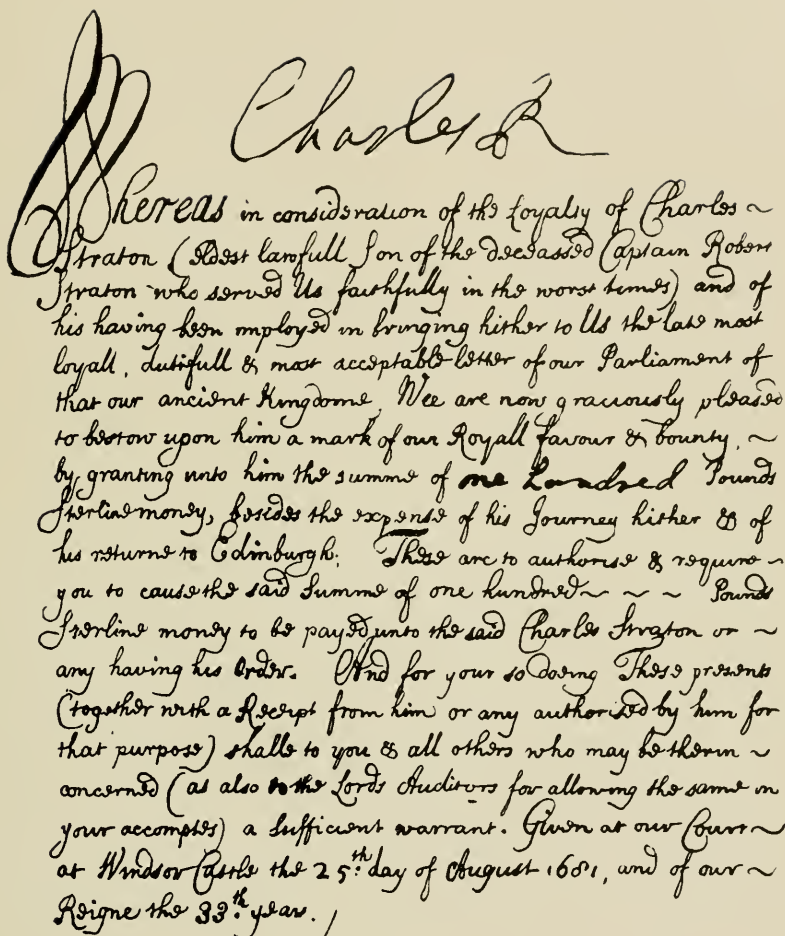 Charles R
Whereas in consideration of the Loyalty of Charles ~
Straton (eldest lawfull Son of the deceassed Captain Robert
Straton who served Us faithfully in the worst times) and of
his having been imployed in bringing hither to Us the late most
loyall, dutifull & most acceptable letter of our Parliament of
that our ancient Kingdome, Wee are now graciously pleased
to bestow upon him a mark of our Royall favour & bounty, ~
by granting unto him the summe of one hundred Pounds
Sterline money, besides the expense of his Journey hither & of
his returne to Edinburgh; These are to authorise & require ~
you to cause the said Summe of one hundred ~ ~ ~ Pounds
Sterline money to be payed unto the said Charles Straton or ~
any having his Order. And for your so doing These presents
(together with a Receipt from him or any authorised by him for
that purpose) shalle to you & all others who may be therin ~
concerned (as also to the Lords Auditors for allowing the same in
your accomptes) a sufficient warrant. Given at our Court ~
at Windsor Castle the 25th day of August 1681, and of our ~
Reigne the 33th year.